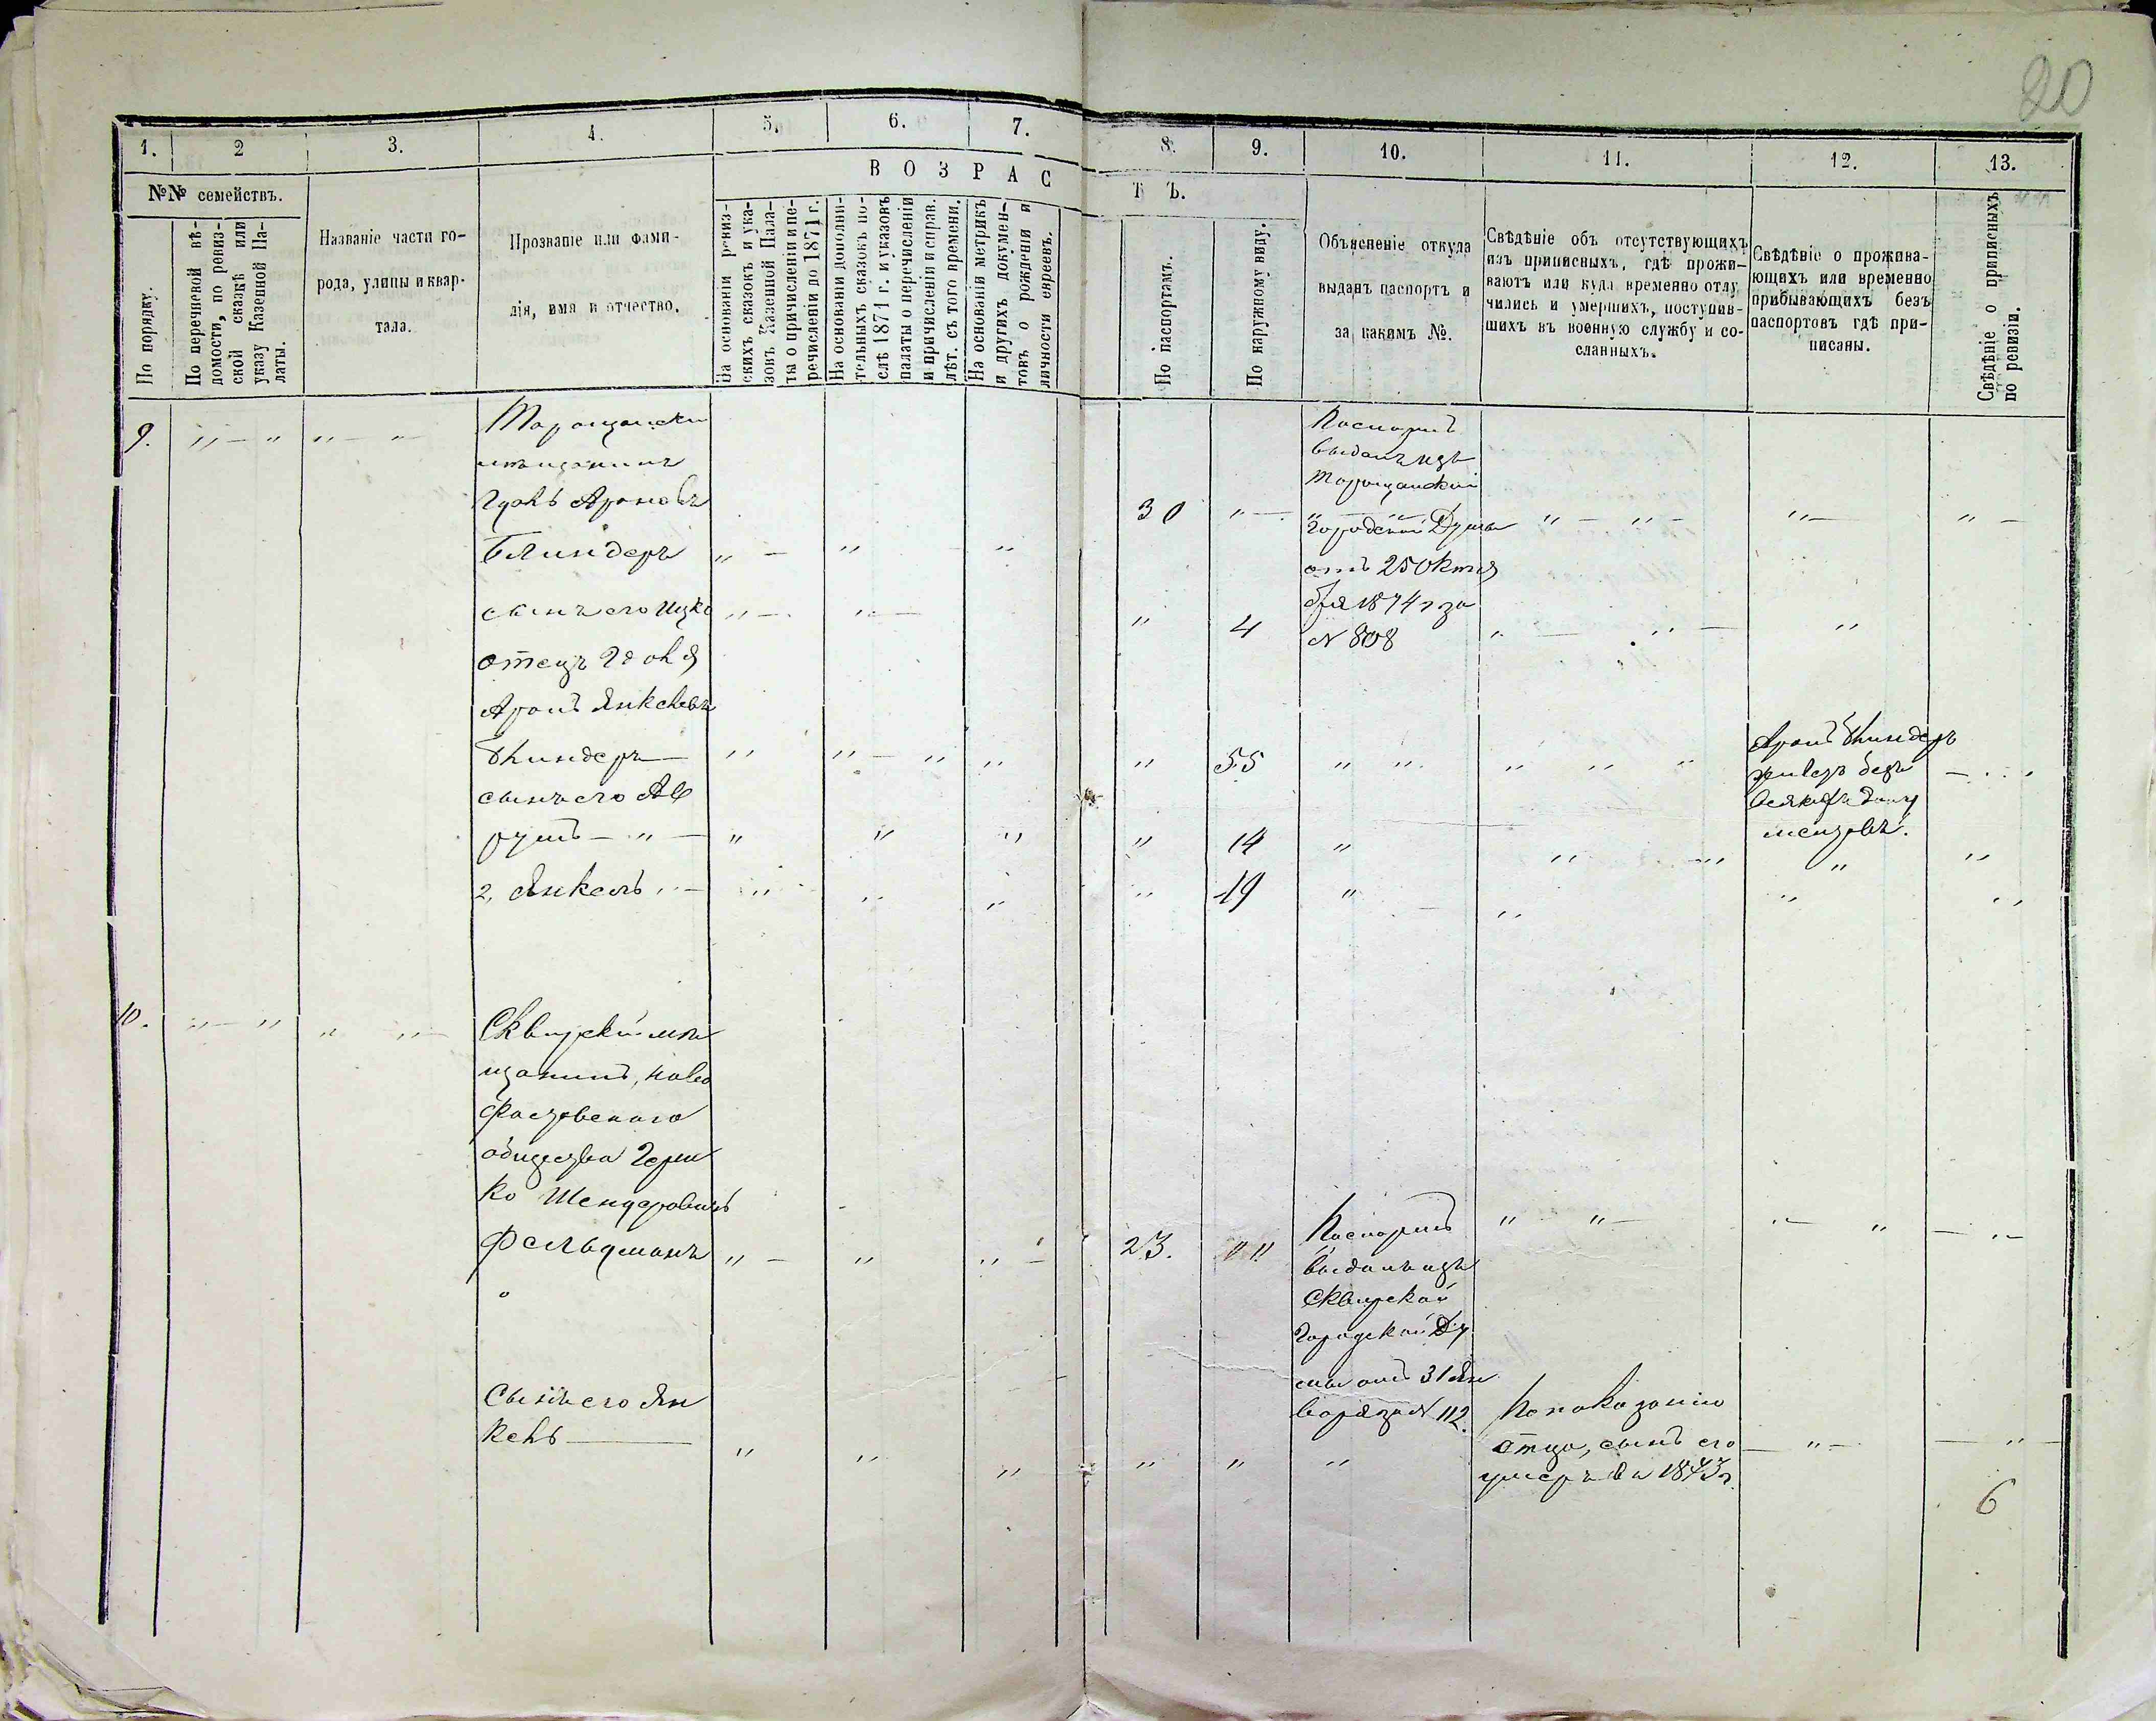 20
1. 2 3. 4. 5. 6. 7. 8. 9. 10. 11. 12. 13.
ВОЗРАСТЪ.
№№ семействъ.
По порядку.
По перечневой вѣ-
домости, по ревиз-
ской сказкѣ или
указу Казенной Па-
латы.
Названіе части го-
рода, улицы и квар-
тала.
Прозваніе или фами-
лія, имя и отчество.
На основаніи ревиз-
скихъ сказокъ и ука-
зовъ Казенной Пала-
ты о причисленіи и пе-
речисленіи до 1871 г.
На основаніи дополни-
тельныхъ сказокъ по-
слѣ 1871 г. и указовъ
палаты о перечисленіи
и причисленіи и справ.
лѣт. съ того времени.
На основаніи метрикъ
и другихъ докумен-
товъ о рожденіи и
личности евреевъ.
По паспортамъ.
По наружному виду.
Объясненіе откуда
выданъ паспортъ и
за какимъ №.
Свѣдѣніе объ отсутствующихъ
изъ приписныхъ, гдѣ прожи-
ваютъ или куда временно отлу
чились и умершихъ, поступив-
шихъ въ военную службу и со-
сланныхъ.
Свѣдѣніе о прожива-
ющихъ или временно
прибывающихъ безъ
паспортовъ гдѣ при-
писаны.
Свѣдѣніе о приписныхъ
по ревизіи.
9. „ — „ „ — „ —
Таращански
мѣщанинъ
Ароновъ
Блиндеръ „ — „ — „
30 „ —
Паспортъ
выданъ изъ
Таращанской
Городской Думы
отъ 25 Октя
бря 1874 г за
№ 808
сынъ его Ицко „ — „ — „ 4
отецъ
Аронъ Янкелевъ
Блиндеръ — „ „ — „ „ „ 55 „ „ „ „ „
Аронъ Блиндеръ
живетъ безъ
всякихъ доку
ментовъ.
сынъ его Ав
румъ — „ — „ „ „ „ 14 „ „ „ „
2, Янкель „ — „ „ „ „ 19 „ „ „ „
10. „ — „ „ „ —
Сквирскій мѣ
щанинъ, ново
Фастовскаго
общества Герш
ко Шендеровичъ
Фельдманъ „ — „ „ — 23. „ „
Паспортъ
выданъ изъ
Сквирской
Городской Ду
мы отъ 31 Ян
варя за № 112.
Сынъ его Ян
кель — „ „ „ „ „ „
По показанію
отца, сынъ его
умеръ въ 1873 г.
— „ — — „ —
6